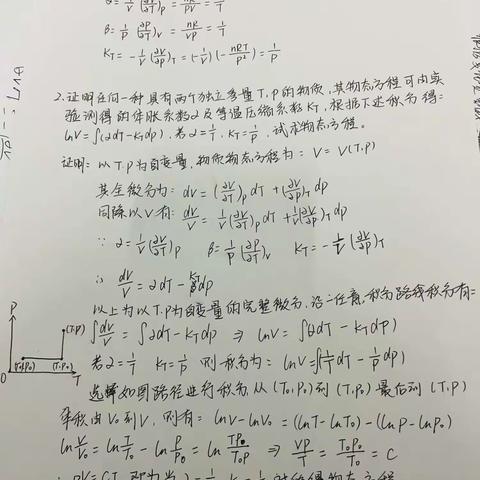 α = 1/V (∂V/∂T)_P = nR/PV = 1/T
β = 1/P (∂P/∂T)_V = nR/VP = 1/T
K_T = -1/V (∂V/∂P)_T = (-1/V)(-nRT/P²) = 1/P
2.证明任何一种具有两个独立参量T.P的物质,其物态方程可由实
验测得的体胀系数α及等温压缩系数K_T,根据下述积分得:
lnV=∫(αdT-K_TdP),若α=1/T,K_T=1/P,试求物态方程。
证明:以T.P为自变量,物质物态方程为:V=V(T.P)
其全微分为:dV=(∂V/∂T)_P dT+(∂V/∂P)_T dp
同除以V有:dV/V=1/V(∂V/∂T)_P dT+1/V(∂V/∂P)_T dp
∵ α=1/V(∂V/∂T)_P β=1/P(∂P/∂T)_V K_T=-1/V(∂V/∂P)_T
∴ dV/V=αdT-K_T dp
以上为以T.P为自变量的完整微分,沿一任意积分路线积分有:
∫dV/V=∫αdT-K_TdP ⇒ lnV=∫(αdT-K_TdP)
若α=1/T K_T=1/P 则积分为:lnV=∫(1/T dT-1/P dP)
选择如图路径进行积分,从(T₀,P₀)到(T,P₀)最后到(T,P)
P
(T,P)
(T₀,P₀)
(T,P₀)
O
T
体积由V₀到V,则有:lnV-lnV₀=(lnT-lnT₀)-(lnP-lnP₀)
ln V/V₀=ln T/T₀-ln P/P₀=ln TP₀/T₀P ⇒ VP/T=T₀P₀/T₀=C